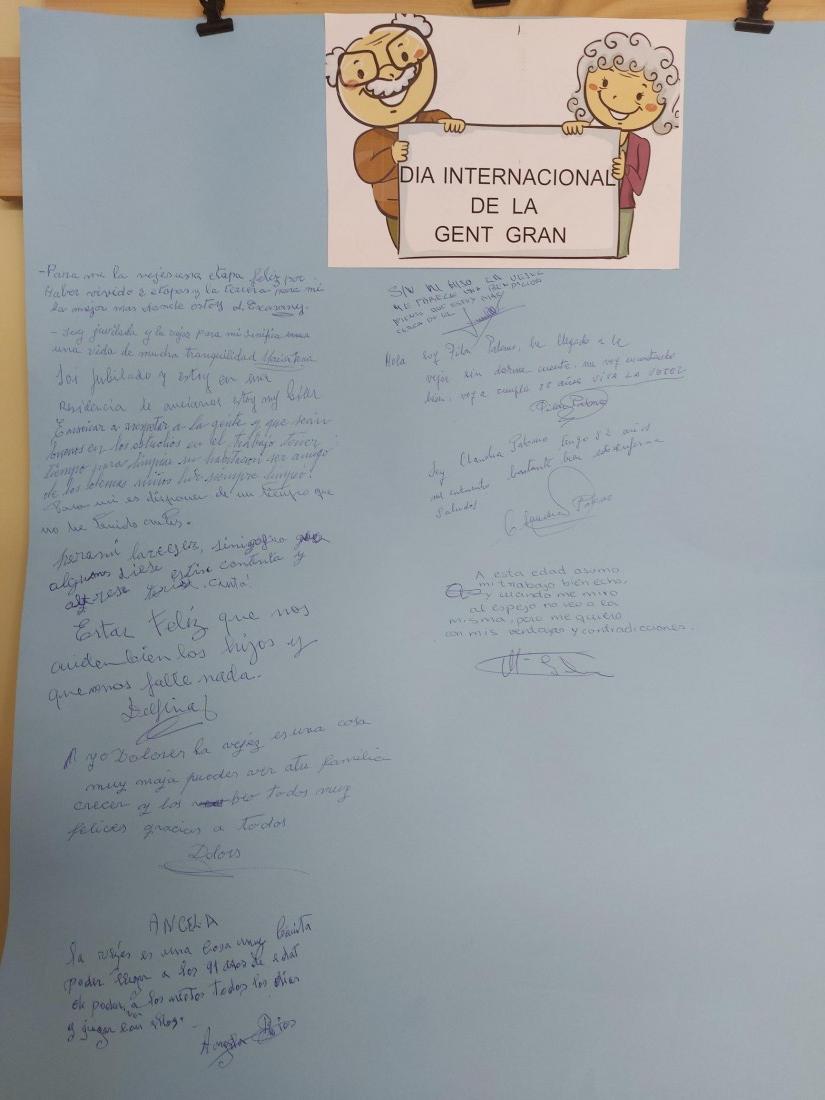 DIA INTERNACIONAL
DE LA
GENT GRAN
-Para mi la vejes una etapa feliz por
Haber vivido 2 etapas y la tercera para mi
la mejor mas donde estoy
- Soy jubilada y la vejes para mi
una vida de mucha tranquilidad
Soi Jubilado y estoy en una
Residencia de ancianos estoy muy
a respetar a la gente y que sean
buenos en los estudios en el trabajo tener
tiempo para limpiar su habitacion ser amigo
de los demas niños
Para mi es disponer de un tiempo que
no he tenido antes.
contenta y
Estar Feliz que nos
cuiden bien los hijos y
que no nos falte nada.
Delfina
yo Dolores la vejez es una cosa
muy maja puedes ver a tu familia
crecer y los beo todos muy
felices gracias a todos
Dolors
ANGELA
la vejes es una cosa muy bonita
poder llegar a los 91 años de edat
ok poder a los nietos todos los dias
y jugar con ellos.
Angela Rios
SIN AL HIJO LA VEJEZ
ME PARECE UNA BENDICION
PIENSO QUE ESTOY MAS
CERCA DE EL
Hola soy Pilar Palomo, he llegado a la
vejez sin darme cuenta, me voy encontrando
bien, voy a cumplir años VIVA LA VEJEZ
Pilar Palomo
Soy Claudia Palomo tengo 82 años
me encuentro bastante bien
Saludos
Claudia Palomo
A esta edad asumo
mi trabajo bien echo,
y cuando me miro
al espejo no veo a la
misma, pero me quiero
con mis ventajas y contradicciones.